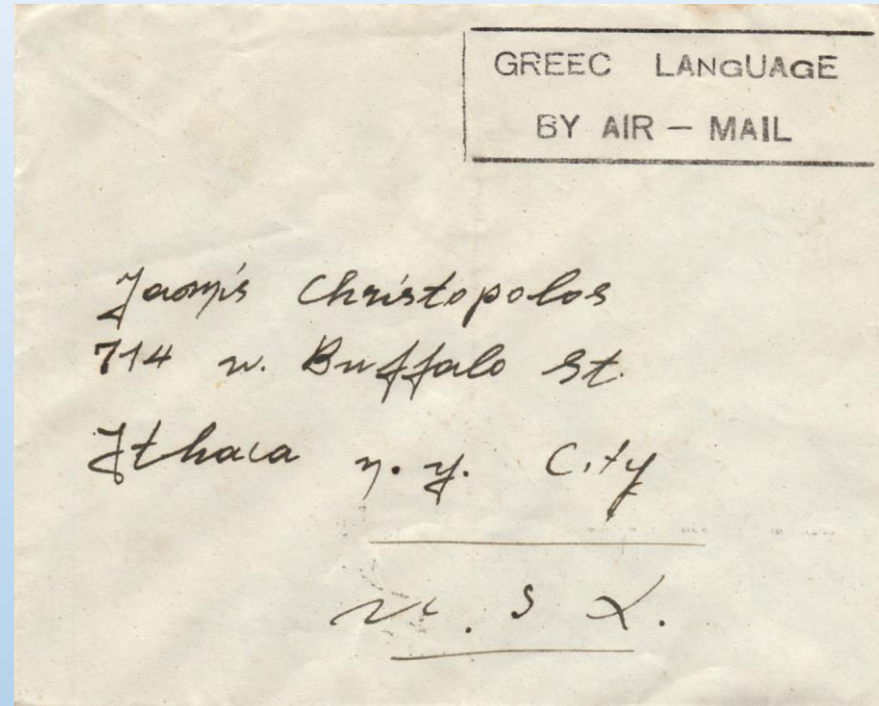 GREEC LANGUAGE
BY AIR — MAIL
Jaomis Christopolos
714 w. Buffalo St.
Ithaca n.y. City
U. S A.